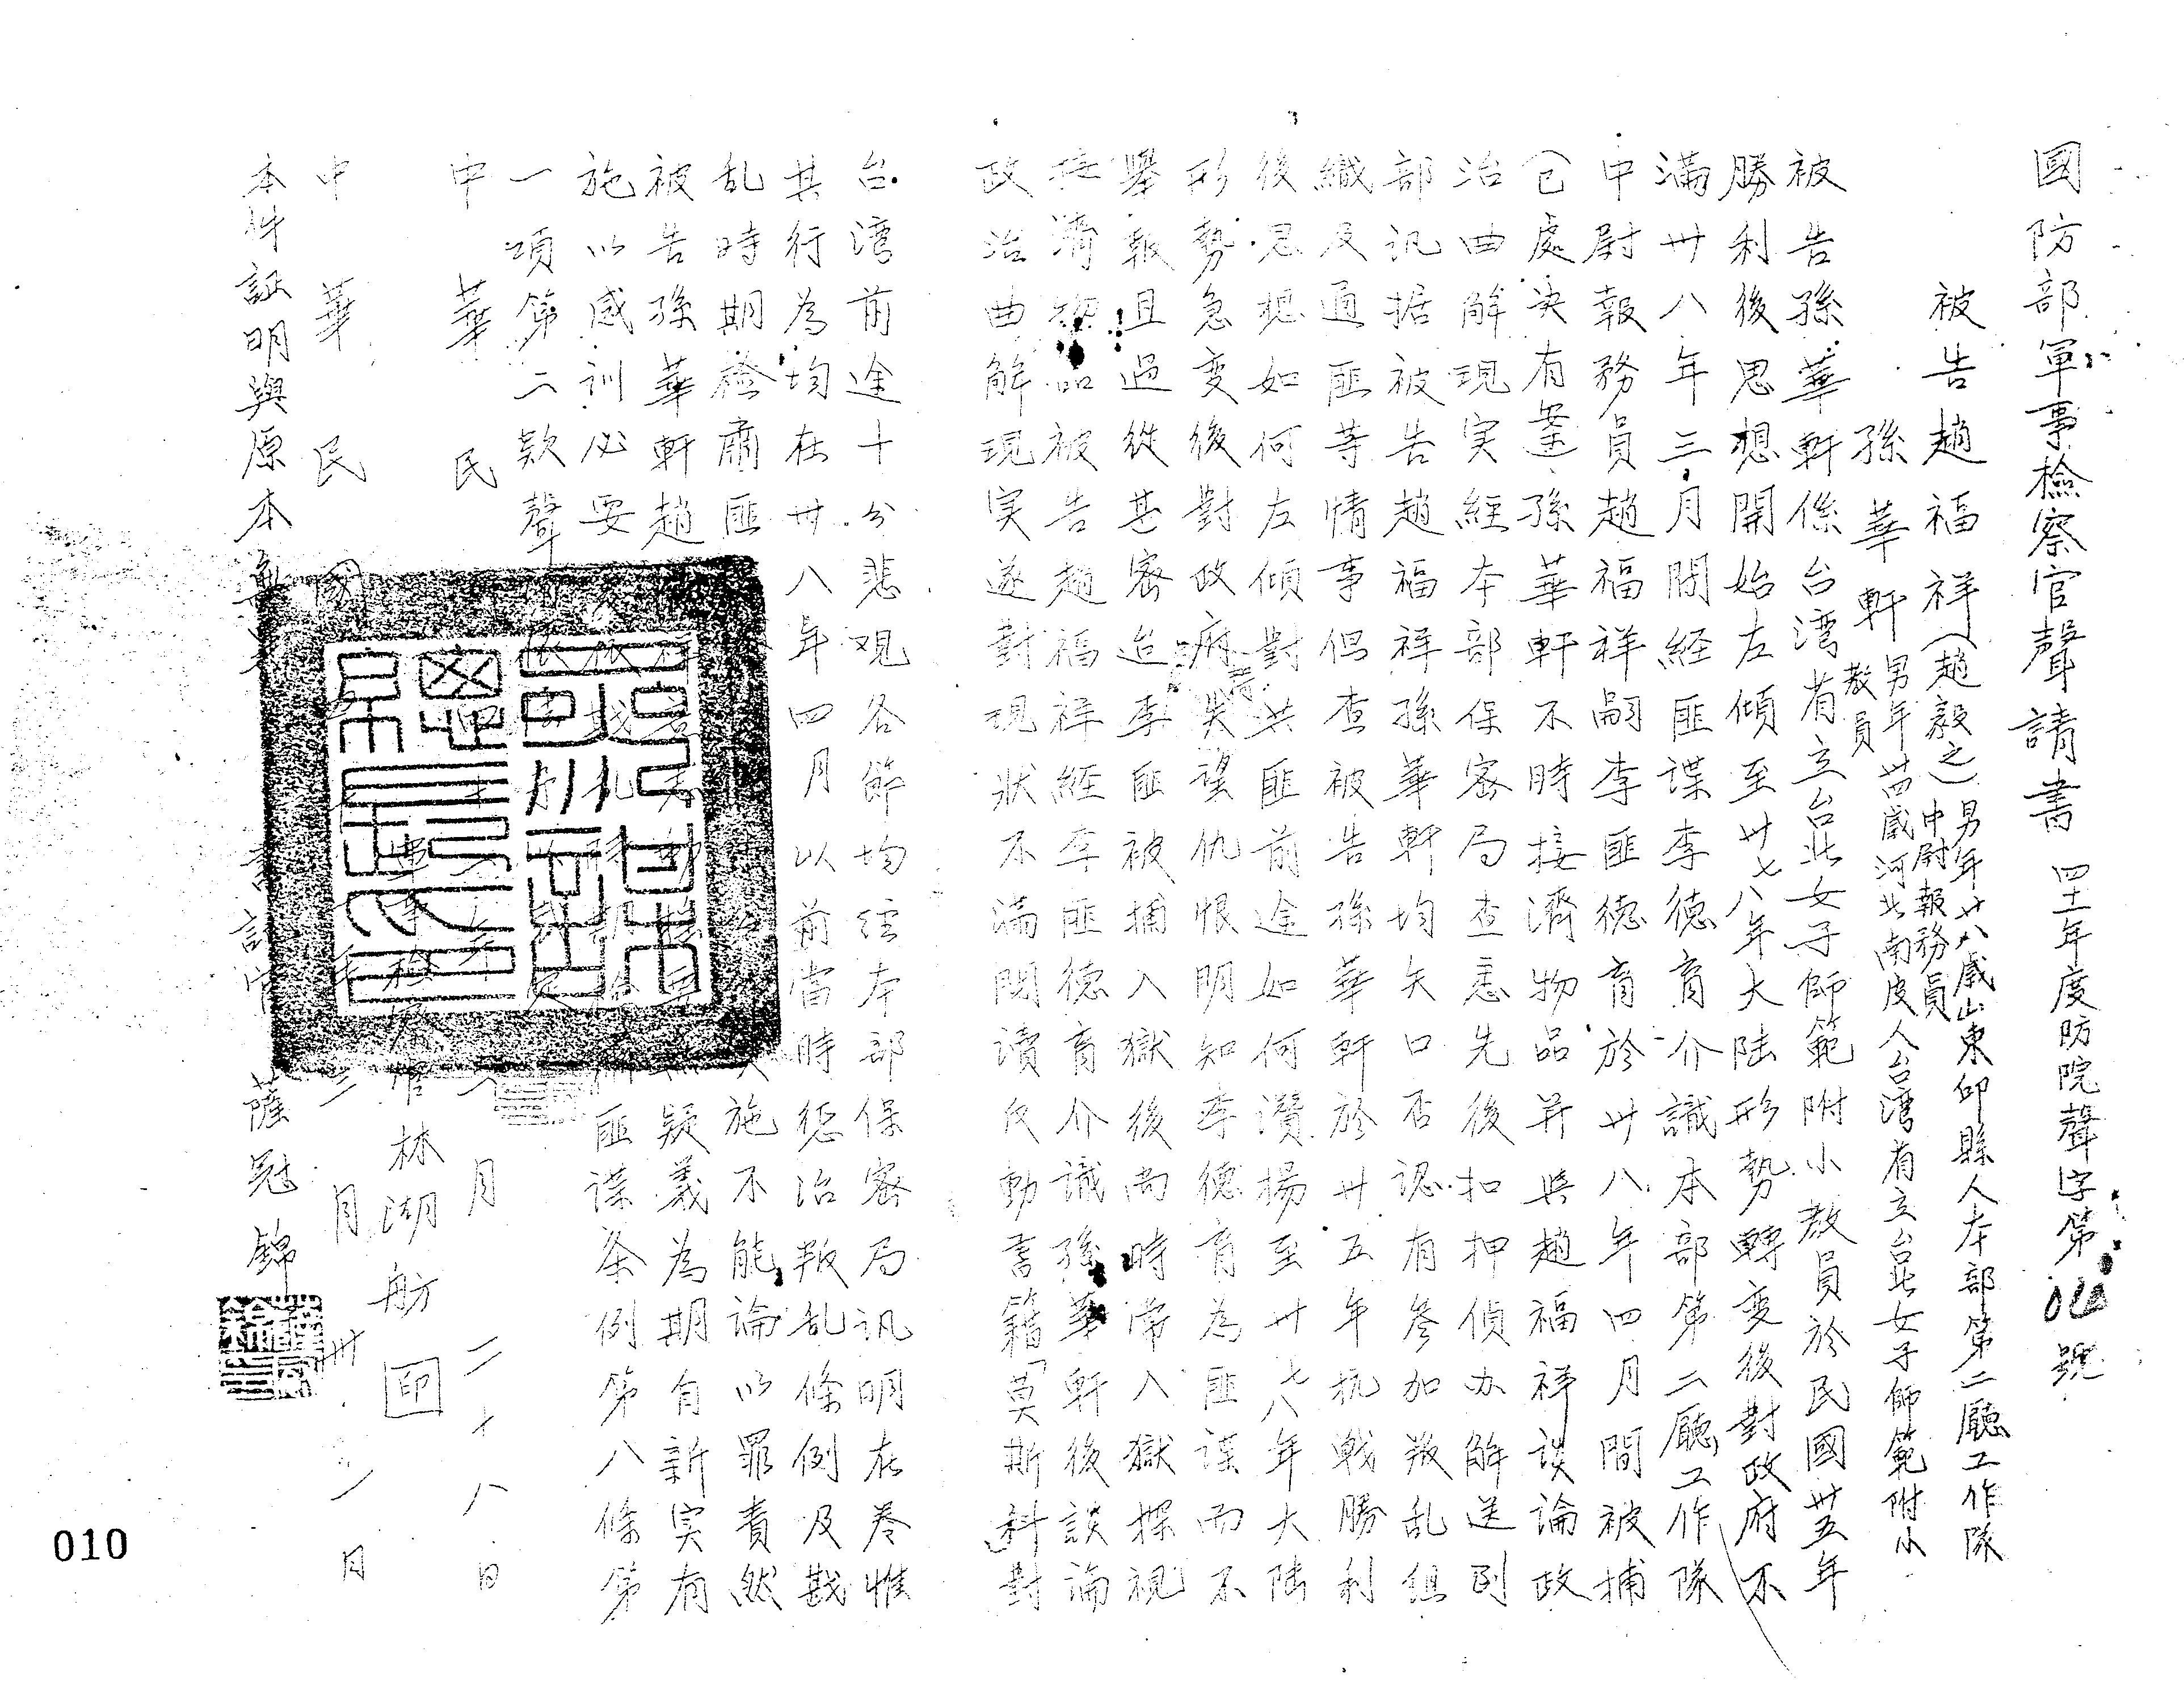 國防部軍事檢察官聲請書 四十一年度防院聲字第 號
被告趙福祥(趙毅之)男年廿八歲山東 縣人本部第二廳工作隊
中尉報務員
孫華軒 男年廿四歲河北南皮人台灣省立台北女子師範附小
教員
被告孫華軒係台灣省立台北女子師範附小教員於民國卅五年
勝利後思想開始左傾至卅七八年大陆形勢轉变後對政府不
滿卅八年三月間経匪諜李德育介識本部第二廳工作隊
中尉報務員趙福祥嗣李匪德育於卅八年四月間被捕
(已處决有案)孫華軒不時接濟物品并與趙福祥談論政
治曲解現实経本部保密局查悉先後扣押偵办解送到
部讯据被告趙福祥孫華軒均矢口否認有參加叛乱組
織及通匪等情事但查被告孫華軒於卅五年抗戰勝利
後思想如何左傾對共匪前途如何讚揚至卅七八年大陆
形勢急变後對政府失望仇恨明知李德育為匪諜而不
舉報且過從甚密迨李匪被捕入獄後尚時常入獄探視
接濟物品被告趙福祥経李匪德育介識孫華軒後談論
政治曲解現实遂對現狀不滿閱讀反動書籍「莫斯科」對
台灣前途十分悲观各節均経本部保密局讯明在卷惟
其行為均在卅八年四月以前當時惩治叛乱條例及戡
乱時期檢肅匪 施不能論以罪責然
被告孫華軒趙 疑義為期有新実有
施以感训必要 匪諜条例第八條第
一項第二款聲
中華民 月二十八日
軍事檢察官林湖舫 印
中華民國 三月 日
本件証明與原本無異
書記官 薩冠錦
010